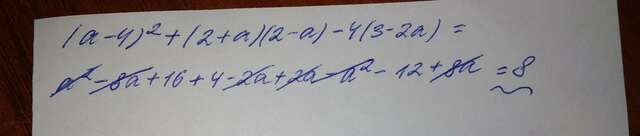 (a-4)² + (2+a)(2-a) - 4(3-2a) =
a² - 8a + 16 + 4 - 2a + 2a - a² - 12 + 8a = 8